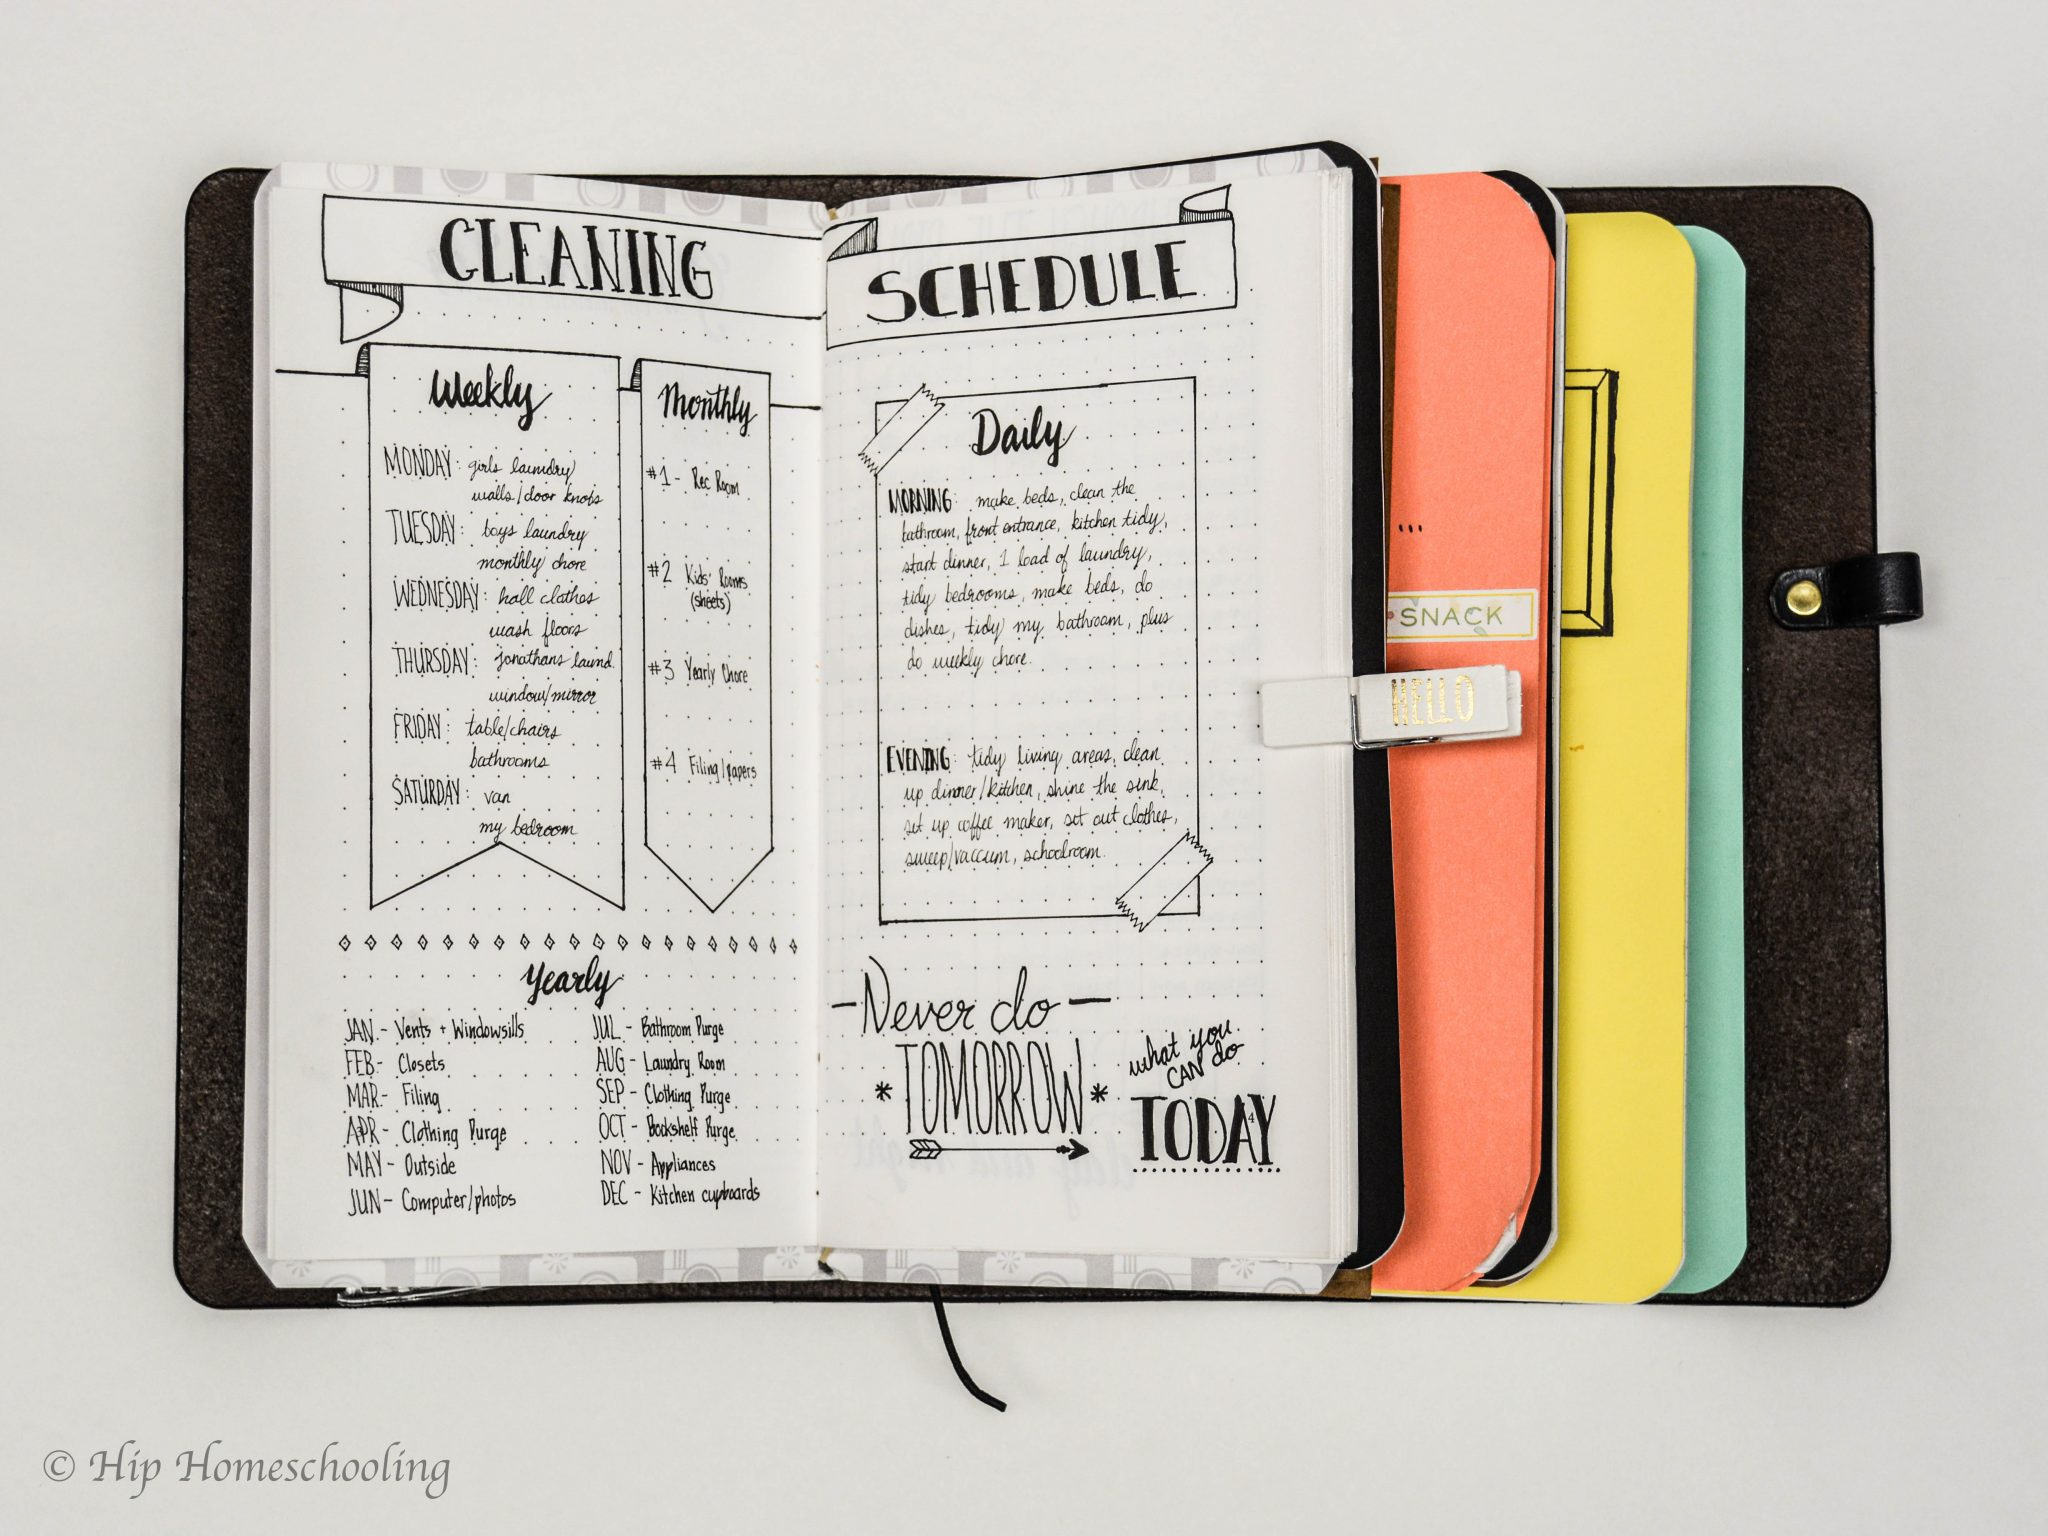 CLEANING
SCHEDULE
Weekly
MONDAY: girls laundry
walls/door knobs
TUESDAY: boys laundry
monthly chore
WEDNESDAY: hall clothes
wash floors
THURSDAY: jonathans laund.
window/mirror
FRIDAY: table/chairs
bathrooms
SATURDAY: van
my bedroom
Monthly
#1 - Rec Room
#2 Kids' Rooms
(sheets)
#3 Yearly Chore
#4 Filing/papers
Yearly
JAN - Vents + Windowsills
FEB - Closets
MAR - Filing
APR - Clothing Purge
MAY - Outside
JUN - Computer/photos
JUL - Bathroom Purge
AUG - Laundry Room
SEP - Clothing Purge
OCT - Bookshelf Purge
NOV - Appliances
DEC - Kitchen cupboards
Daily
MORNING: make beds, clean the
bathroom, front entrance, kitchen tidy,
start dinner, 1 load of laundry,
tidy bedrooms, make beds, do
dishes, tidy my bathroom, plus
do weekly chore.
EVENING: tidy living areas, clean
up dinner/kitchen, shine the sink,
set up coffee maker, set out clothes,
sweep/vaccum, schoolroom.
- Never do -
* TOMORROW *
what you
CAN do
TODAY
4
...
SNACK
HELLO
© Hip Homeschooling